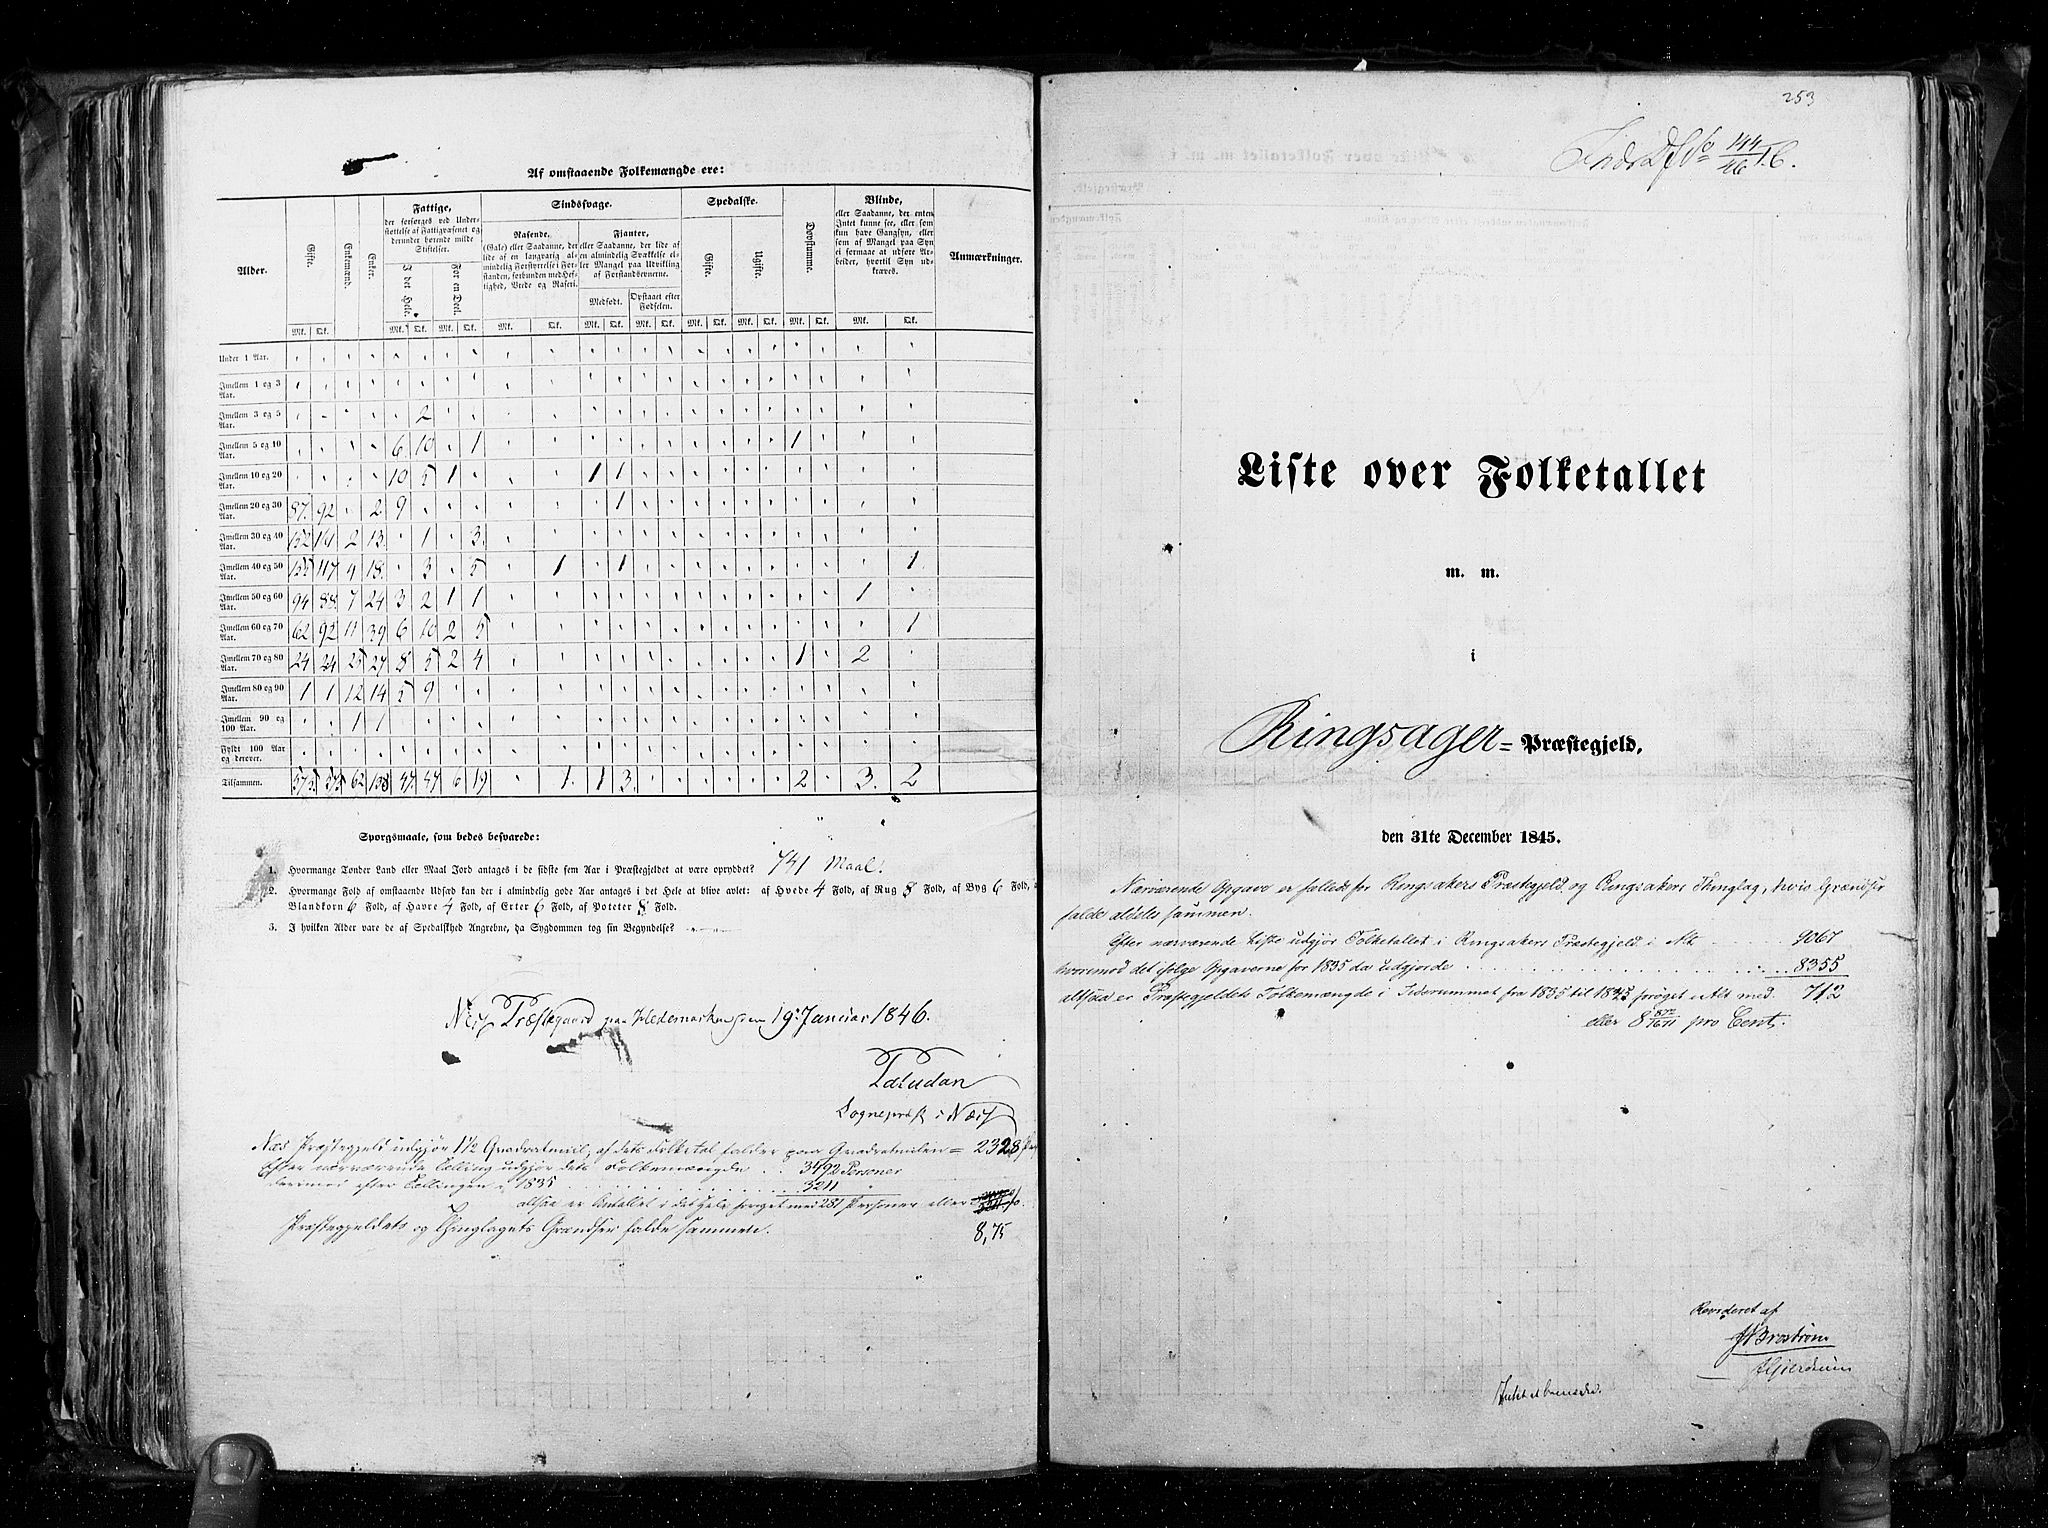 Af omstaaende Folkemængde ere:
Alder. Gifte. Enkemænd. Enker. Fattige, der forsørges ved Understøttelse af Fattigvæsenet og derunder hørende milde Stiftelser. Sindssvage. Spedalske. Døvstumme. Blinde, eller Saadanne, der enten Intet kunne see, eller som kun have Gangsyn, eller som af Mangel paa Syn ei formaae at udføre Arbeider, hvortil Syn udkræves. Anmærkninger.
I det Hele. For en Deel. Rasende, (Gale) eller Saadanne, der lide af en langvarig almindelig Forstyrrelse i Forstanden, forbunden med Heftighed, Vrede og Raseri. Fjanter, eller Saadanne, der lide af en almindelig Svækkelse eller Mangel paa Udvikling af Forstandsevnerne. Gifte. Ugifte.
Medfødt. Opstaaet efter Fødselen.
Mk. Qk. Mk. Qk. Mk. Qk. Mk. Qk. Mk. Qk. Mk. Qk. Mk. Qk. Mk. Qk. Mk. Qk. Mk. Qk.
Under 1 Aar.
Imellem 1 og 3 Aar.
Imellem 3 og 5 Aar. 2
Imellem 5 og 10 Aar. 6 10 1 1
Imellem 10 og 20 Aar. 10 5 1 1 1
Imellem 20 og 30 Aar. 87. 92 2 9 1
Imellem 30 og 40 Aar. 152 161 2 13. 1 3
Imellem 40 og 50 Aar. 155 117 4 18. 3 5 1 1 1
Imellem 50 og 60 Aar. 94 88. 7 24 3 2 1 1 1
Imellem 60 og 70 Aar. 62 92 11 39 6 10 2 5 1
Imellem 70 og 80 Aar. 24 24 25 27 8 5 2 4 1 2
Imellem 80 og 90 Aar. 1 1 12 14 5 9
Imellem 90 og 100 Aar. 1 1
Fyldt 100 Aar og derover.
Tilsammen. 575. 575 62 138 47. 47 6 19 1. 1 3. 2 3. 2
Spørgsmaale, som bedes besvarede:
1. Hvormange Tønder Land eller Maal Jord antages i de sidste fem Aar i Præstegjeldet at være opryddet? 741 Maal.
2. Hvormange Fold af omstaaende Udsæd kan der i almindelig gode Aar antages i det Hele at blive avlet: af Hvede 4 Fold, af Rug 8 Fold, af Byg 6 Fold, a
Blandkorn 6 Fold, af Havre 4 Fold, af Erter 6 Fold, af Poteter 8 Fold.
3. I hvilken Alder vare de af Spedalskhed Angrebne, da Sygdommen tog sin Begyndelse?
Næs Præstegaard paa Hedemarken den 19. Januar 1846.
Paludan
Sognepræst i Næs
Næs Præstegjeld udgjør 1½ Quadratmiil, af dets Folketal falder paa Quadratmilen = 2328
Efter nærværende Tælling udgjør dets Folkemængde . . 3492 Personer
derimod efter Tællingen i 1835 3211 "
altsaa er Antallet i det Hele forøget med 281 Personer eller
8,75
Præstegjeldets og Thinglagets Grændser falde sammen.
253
144
46
Liste over Folketallet
m. m.
i
Ringsager = Præstegjeld,
den 31te December 1845.
Nærværende Opgave er fælleds for Ringsakers Præstegjeld og Ringsakers Thinglag, hvis Grændser
falde aldeles sammen.
Efter nærværende Liste udgjør Folketallet i Ringsakers Præstegjeld i Alt 9067
hvorimod det ifølge Opgaverne for 1835 da udgjorde 8355
altsaa er Præstegjeldets Folkemængde i Tidsrummet fra 1835 til 1845 forøget i Alt med 712
eller 8 872/1671 pro Cent.
Revideret af
JBroström
Hjerdrum